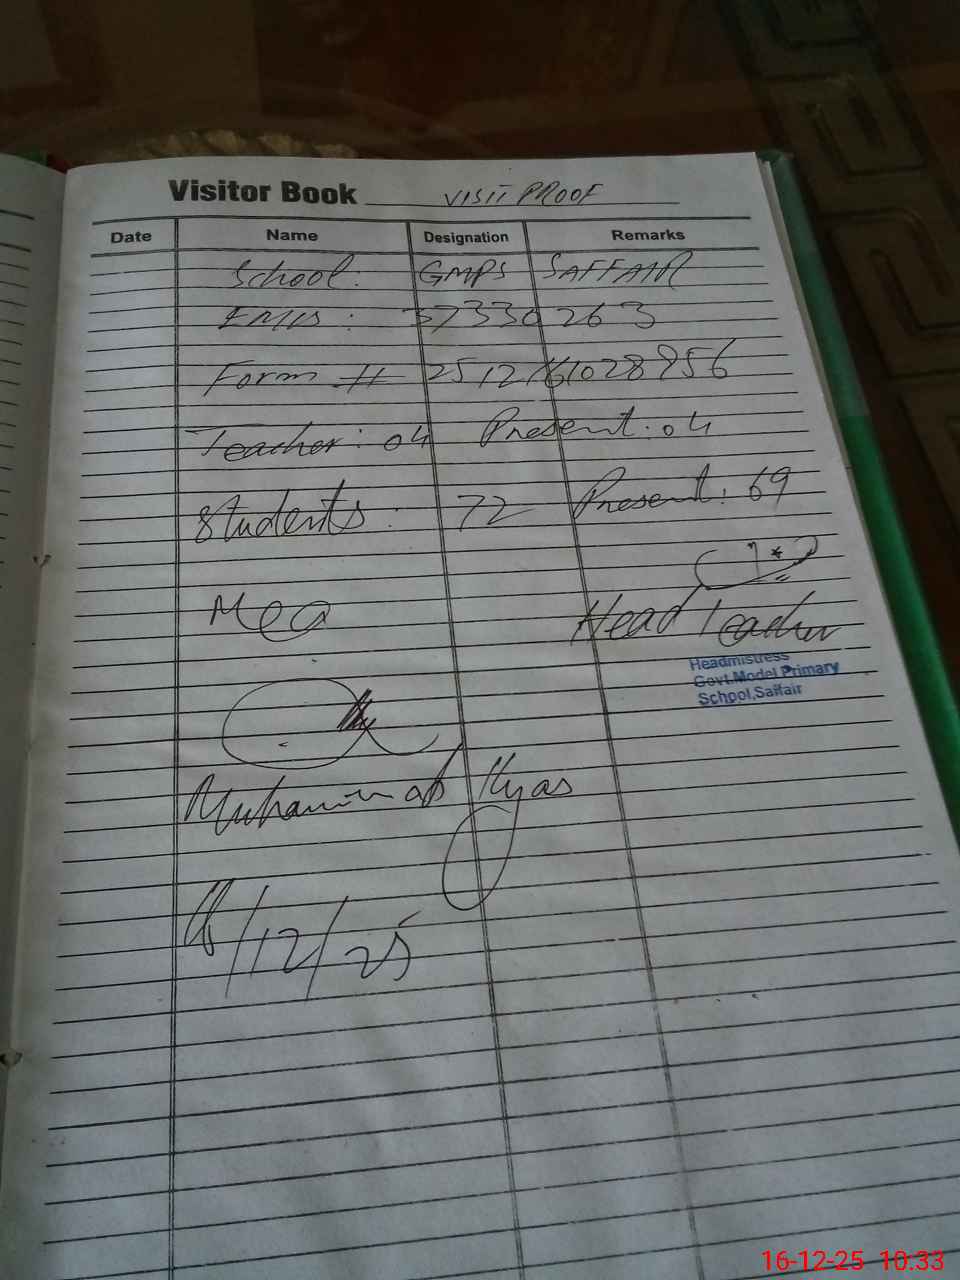 Visitor Book VISIT PROOF
Date Name Designation Remarks
School: GMPS SAFFAIR
EMIS: 37330263
Form # 2512161028956
Teacher: 04 Present: 04
Students: 72 Present: 69
Mea Head Teacher
Headmistress
Govt.Model Primary
School,Saffair
Muhammad Ilyas
16/12/25
16-12-25 10:33